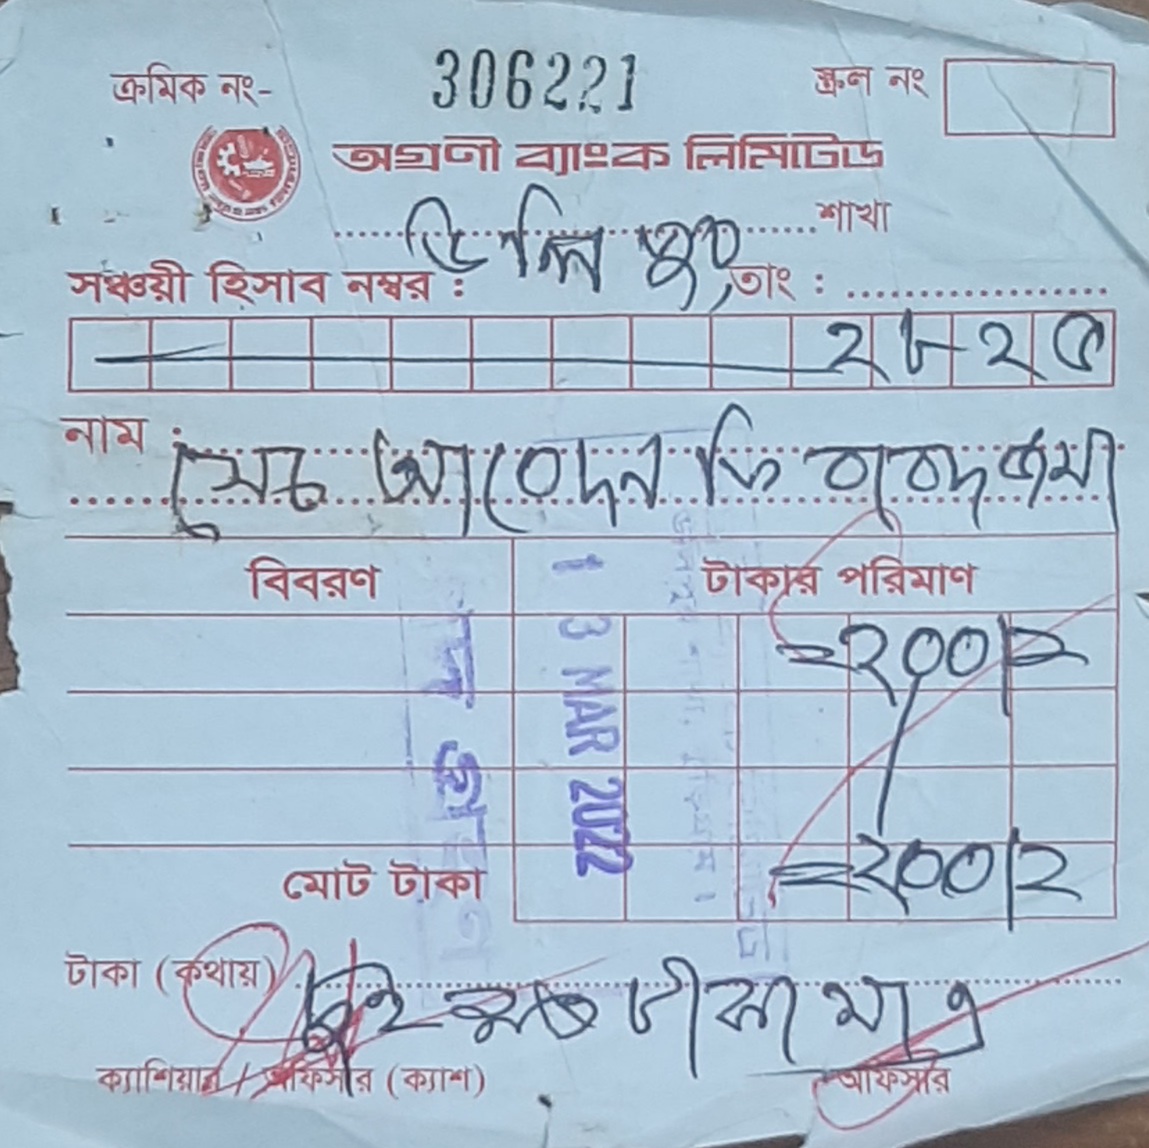 ক্রমিক নং- 306221 স্ক্রল নং
অগ্রণী ব্যাংক লিমিটেড
শাখা
সঞ্চয়ী হিসাব নম্বর : তাং :
২৮২৫
নাম :
আবেদন ফি বাবদ জমা
বিবরণ টাকার পরিমাণ
13 MAR 2022
=২০০/=
মোট টাকা =২০০/=
টাকা (কথায়) দুই শত টাকা মাত্র
ক্যাশিয়ার / অফিসার (ক্যাশ) অফিসার